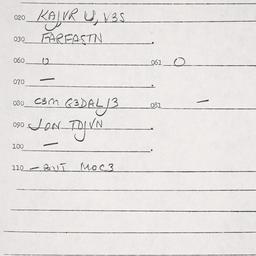 020 KAJVR U, V3S
030 FAREASTN
060 0 061 0
070 —
080 C3M G3DALJ3 081 —
090 JON TDJVN
100 —
110 — BUT MOC3